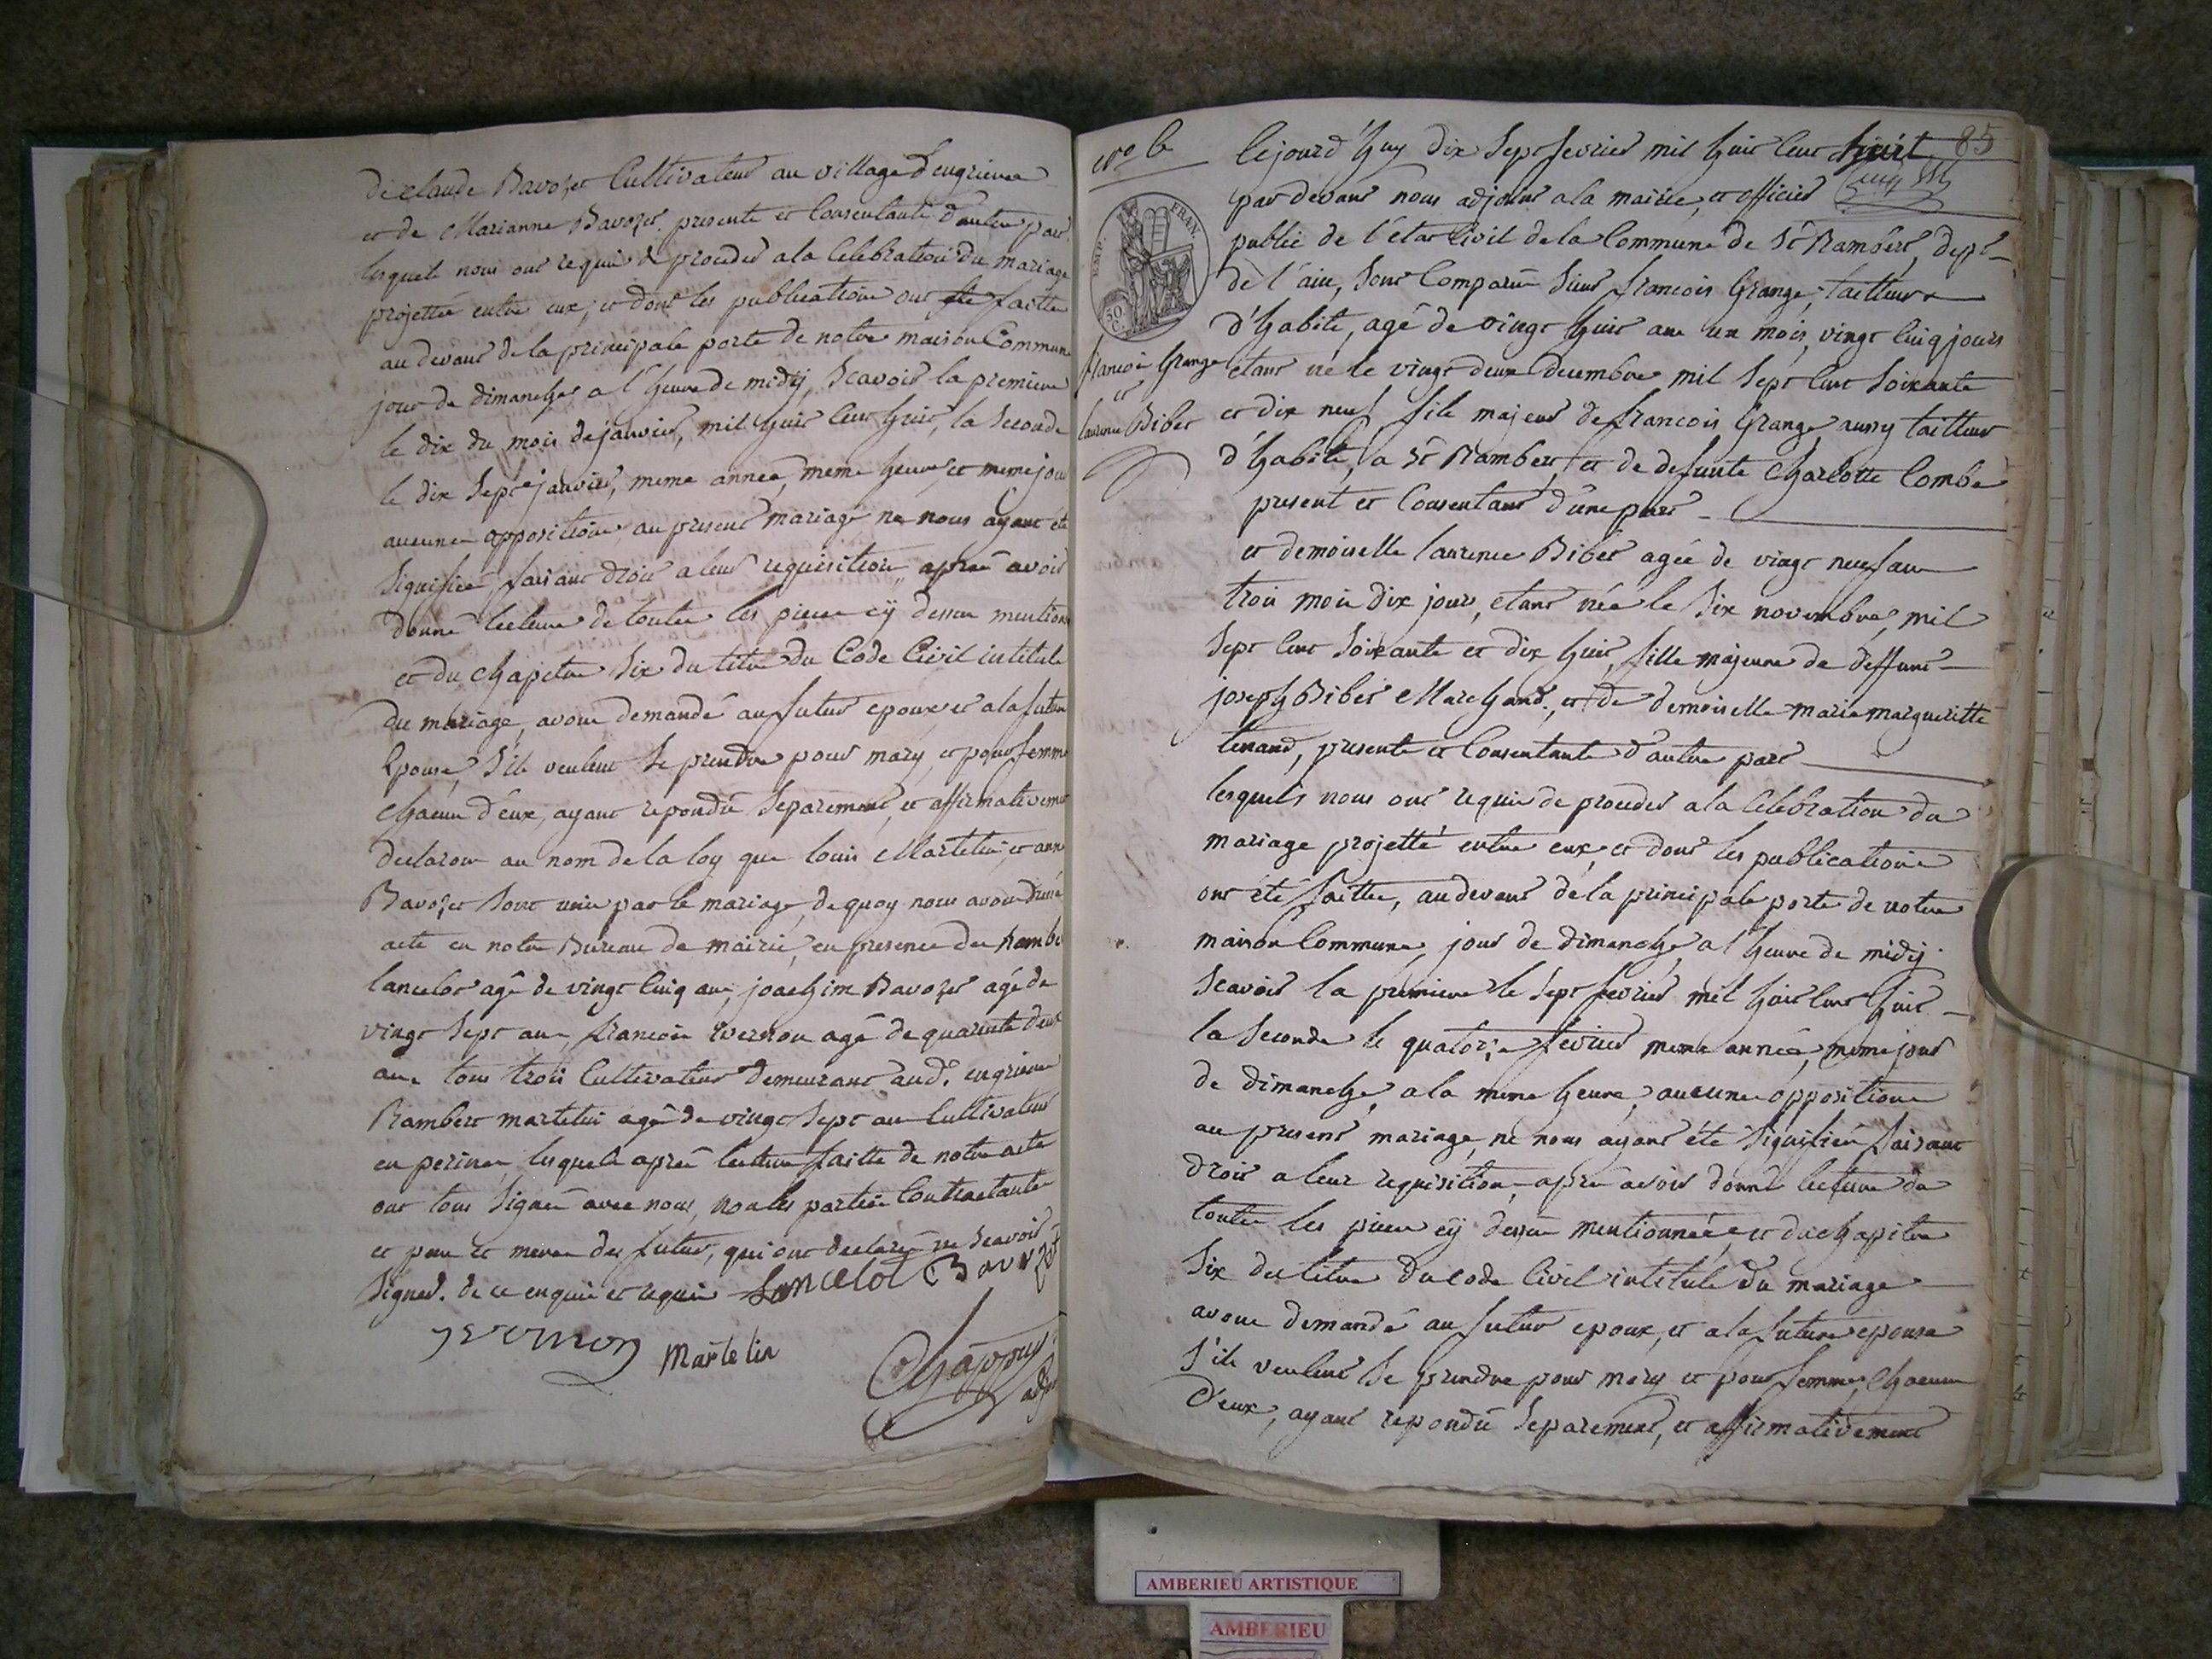 de Claude Bavozet Cultivateur au village d'engrieue
et de Marianne Bavozet presente et Consentante d'autre part
lesquels nous ont requis de proceder a la Celebration du mariage
projetté entre eux, et dont les publications ont faittes
au devant de la principale porte de notre maison Commune
jour de dimanche a l'heure de midÿ, Scavoir la premiere
le dix du mois de janvier, mil huit Cent huit, la Seconde
le dix Sept janvier, meme année, meme heure, et meme jour
aucunes oppositions au present mariage ne nous ayant été
Signifiée, faisant droit a leur requisition, après avoir
donné lecture de toutes les pieces cÿ dessus mention
et du chapitre Six du titre du Code Civil intitulé
du mariage, avons demandé au futur epoux et a la future
Epouse, S'ils veulent Se prendre pour mary, et pour femme
chacun d'eux, ayant repondu Separement, et affirmativement
declarons au nom de la loy que louis Martelin et anne
Bavozet Sont unis par le mariage, de quoy nous avons dressé
acte en notre Bureau de mairie, en presence de Rambert
lancelot agé de vingt Cinq ans, joachim Bavozet agé de
vingt Sept ans, francois vernon agé de quarante deux
ans tous trois Cultivateurs demeurant aud. engrieue
Rambert martelin agé de vingt Sept ans Cultivateur
en perinon, lesquels après lecture faitte de notre acte
ont tous Signé avec nous, non les parties Contractantes
et pere et mere des futurs, qui ont declaré ne Scavoir
Signer. de ce enquis et requis Lancelot Bavozet
vernon Martelin Chappuy adj
N.º 6 Cejourd'huy dix Sept fevrier mil huit Cent huit 85
par devant nous adjoint a la mairie, et officier
public de l'état Civil de la Commune de St Rambert, dept
EMP. FRAN.
50 C.
de l'ain, Sont Comparus Sieur francois Grange, tailleur
d'habits, agé de vingt huit ans un mois, vingt Cinq jours
francois Grange
et
laurence Bibet
etant né le vingt deux decembre mil Sept Cent Soixante
et dix neuf, fils majeur de francois Grange aussy tailleur
d'habits, a St Rambert, et de defunte Charlotte Combe
present et Consentant d'une part
et demoiselle laurence Bibet agée de vingt neuf ans
trois mois dix jours, etant née le Six novembre, mil
Sept Cent Soixante et dix huit, fille majeure de deffunt
joseph Bibet Marchand, et de demoiselle marie margueritte
tenand, presente et Consentante d'autre part
lesquels nous ont requis de proceder a la Celebration du
mariage projetté entre eux, et dont les publications
ont été faittes, au devant de la principale porte de notre
maison Commune, jour de dimanche, a l'heure de midÿ.
Scavoir la premiere le Sept fevrier mil huit Cent huit
la Seconde le quatorze fevrier meme année, meme jour
de dimanche, a la meme heure, aucunes oppositions
au present mariage, ne nous ayant été Signifiée faisant
droit a leur requisition, après avoir donné lecture de
toutes les pieces cÿ dessus mentionnées, et du chapitre
Six du titre du Code Civil intitulé du mariage
avons demandé au futur epoux, et a la future epouse
S'ils veulent Se prendre pour mary et pour femme, chacun
d'eux, ayant repondu Separement, et affirmativement
AMBERIEU ARTISTIQUE
AMBERIEU